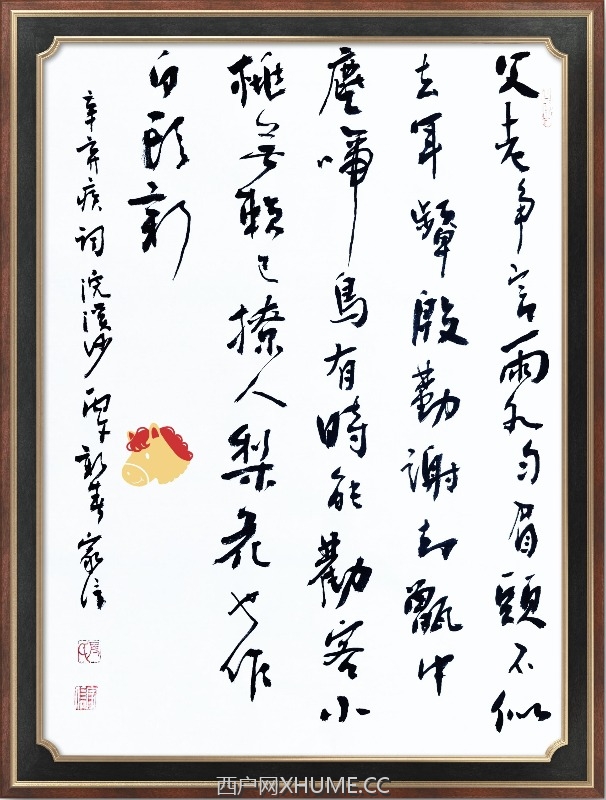 父老争言雨水匀眉頭不似
去年顰殷勤謝却甑中
塵啼鳥有時能勸客小
桃無賴已撩人梨花也作
白頭新
辛弃疾词浣溪沙丙午新春家
西户网XHUME.CC